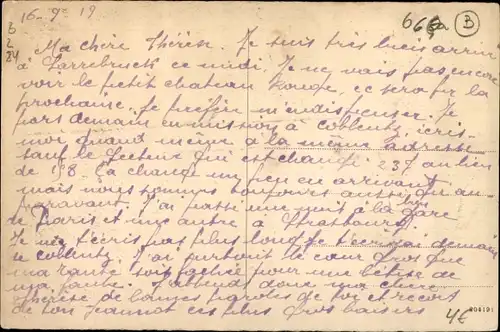 16 - 9e 19
668a B
3
2
84
Ma chère Thérèse. Je suis très bien arrivé
à Sarrebruck ce midi. Je ne vais pas encore
voir le petit chateau rouge, ce sera pr la
prochaine. Je préfère m'en dispenser. Je
pars demain en mission à Coblentz, écris-
moi quand même à la même adresse
sauf le secteur qui est changé 237 au lieu
de 158. Ça change un peu en arrivant
mais nous sommes toujours aussi qu'au
paravant. J'ai passé une nuit à la gare
de Paris et une autre à Strasbourg.
Je ne t'écris pas plus long je t'écrirai demain
de Coblentz. J'ai surtout le cœur gros que
ma tante soit fachée pour une bêtise de
ma faute. J'attends donc ma chère
Thérèse de bonnes paroles de toi et reçois
de ton Jeannot ces plus gros baisers
4€